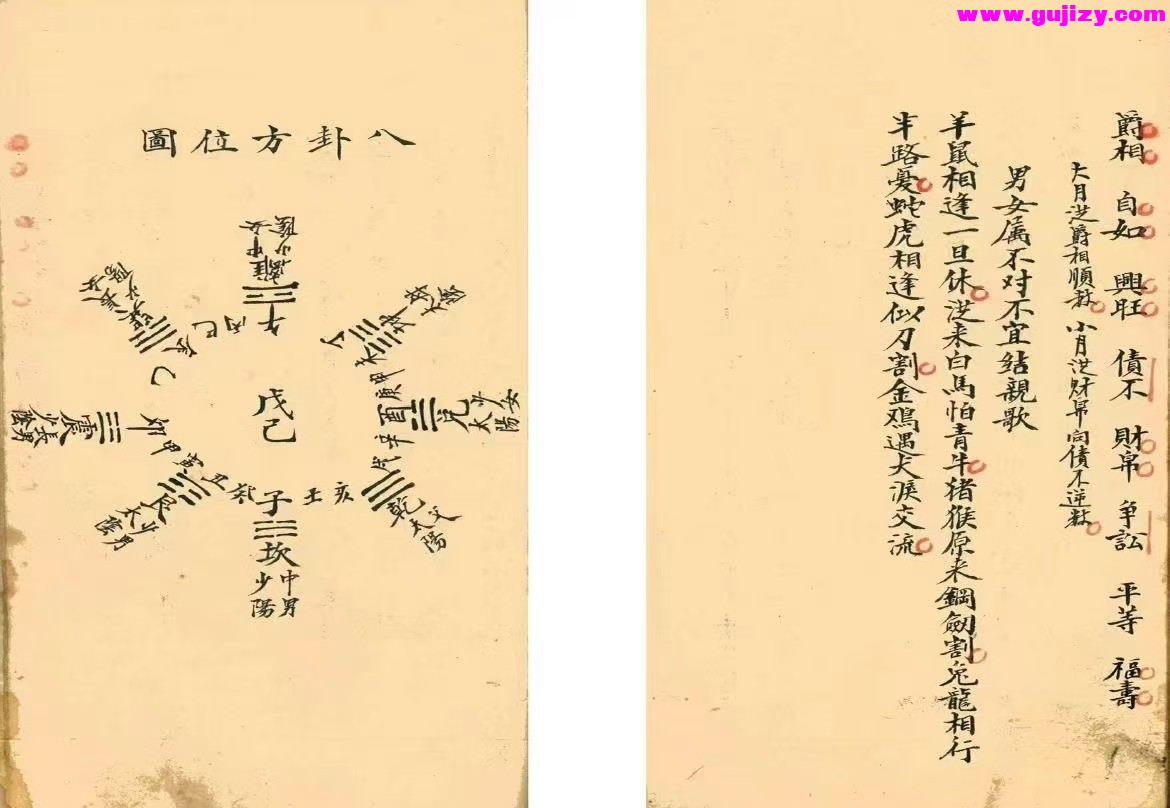 www.gujizy.com
爵相 自如 興旺 債不 財帛 争訟 平等 福壽
大月従爵相順数 小月従財帛向債不逆数
男女属不对不宜結親歌
羊鼠相逢一旦休従来白馬怕青牛猪猴原来鋼劍割兔龍相行
半路憂蛇虎相逢似刀割金鳮遇犬淚交流
八卦方位圖
離
中女
少陰
午
丙
巳
坤
未
丁
兌
少女
太陽
酉
庚
申
辛
戌
乾
父
太陽
亥
壬
子
坎
中男
少陽
癸
丑
艮
少男
太陰
寅
甲
卯
震
長男
少陰
乙
戊己